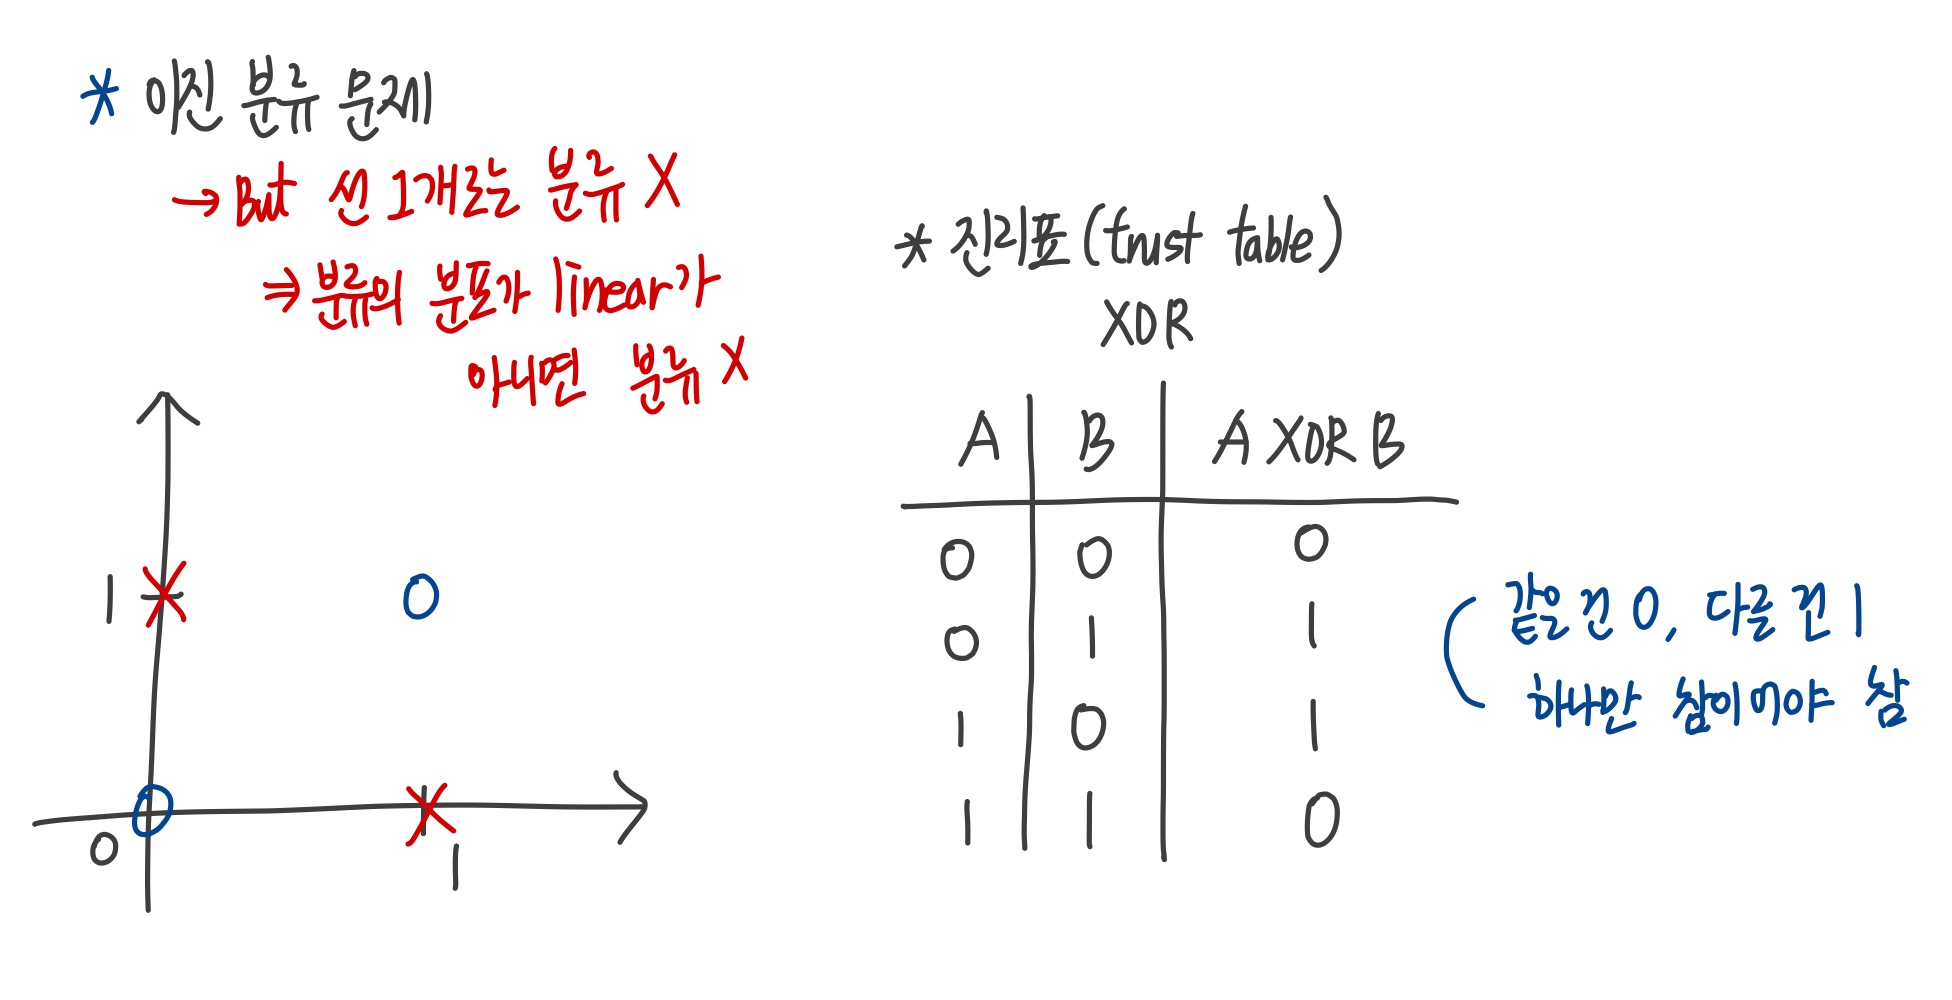 * 이진 분류 문제
→ But 선 1개로는 분류 X
⇒ 분류의 분포가 linear가
아니면 분류 X
1
0
0
1
* 진리표 (trust table)
XOR
A B A XOR B
0 0 0
0 1 1
1 0 1
1 1 0
같은 건 0, 다른 건 1
하나만 참이어야 참